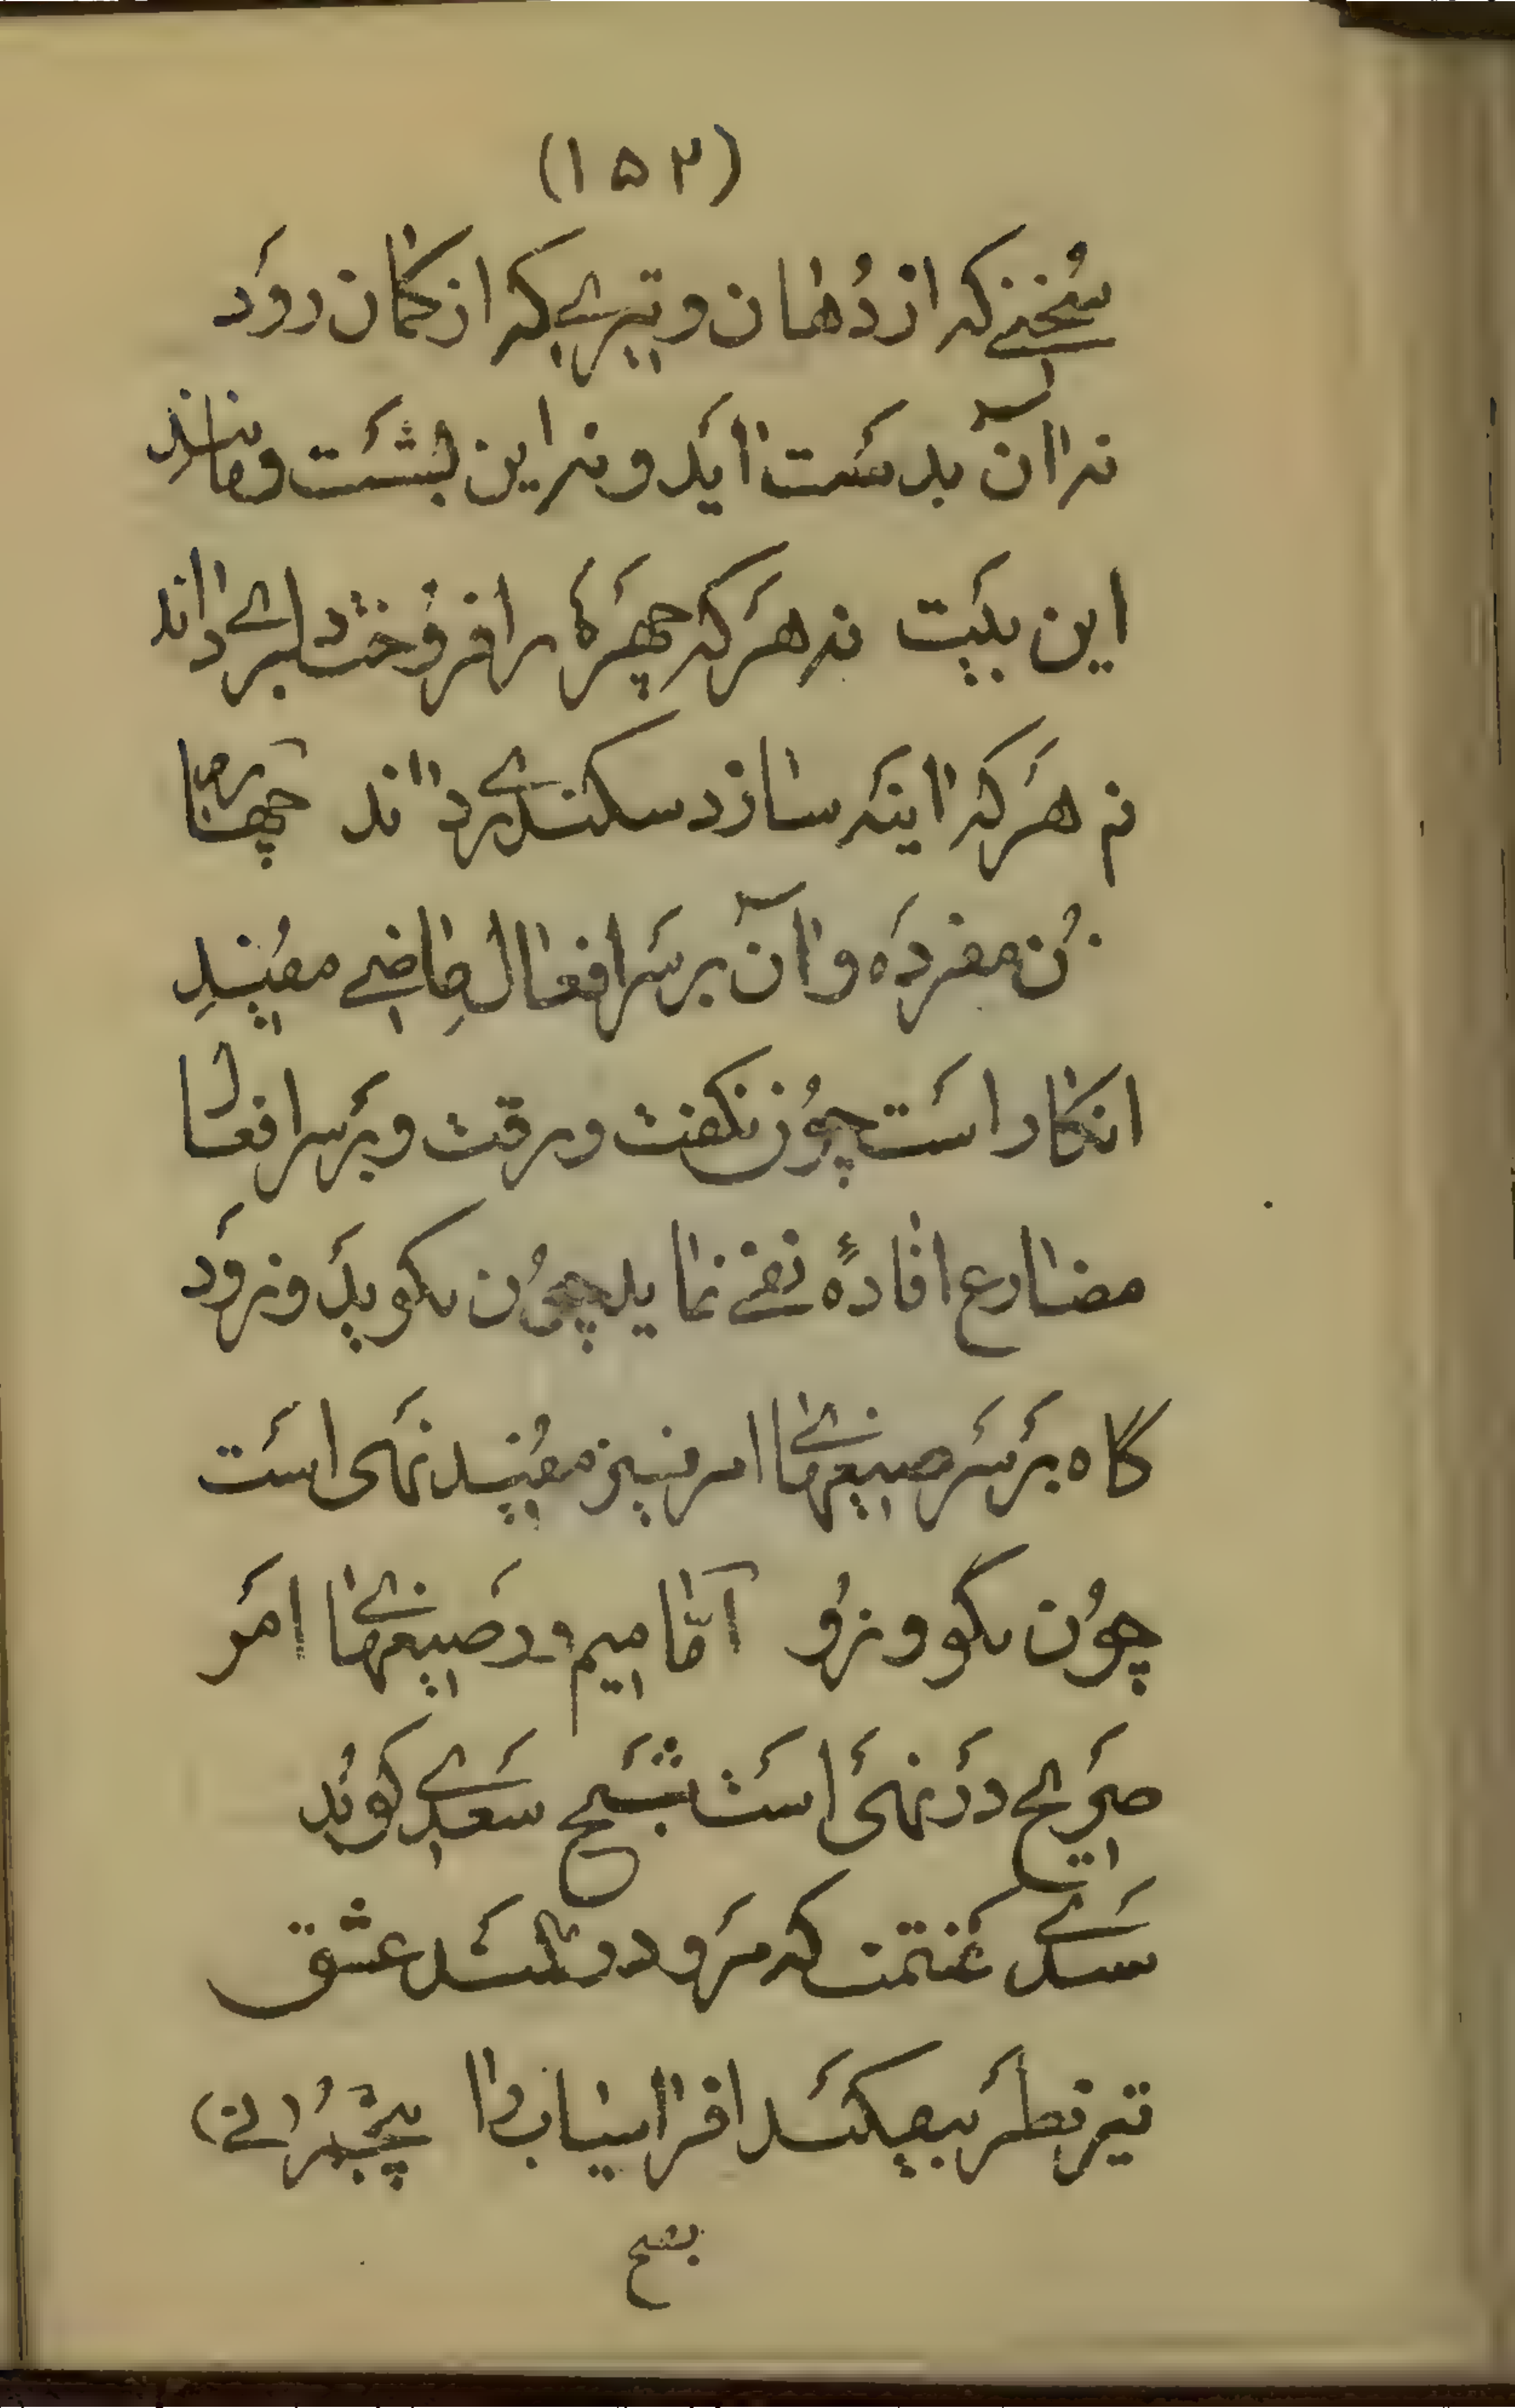 (۱۵۲)
سُخنے که از دُهان و تیرے که از کمان روَد
نه آن بدسَت ایَد و نه این بشَست و مانندِ
این بیَت نه هَرکه چهَرهٔ برافروُخت دلبرے داند
نه هَرکه اینَه سازد سکندرے داند چهارم
نُ مفردَه و آن برسَر افعالِ ماضے مفیُدِ
انکار است چوُن نکفت و نرفت و برَسر افعال
مضارع افادهٔ نفے نماید چوُن نکویَد و نروَد
گاه برَ سَر صیغهائے امر نیز مفیُد نَهی است
چوُن نکو و نرُو امّا میم در صَیغهائے امَر
صَریح درَ نهَی است شَیخ سعَدے کوید
سعدے کفتمت که مرَو در کمَند عشق
تیر نظَر بیفکنَد افراسیاب را پنجُم (نے)
بفتح